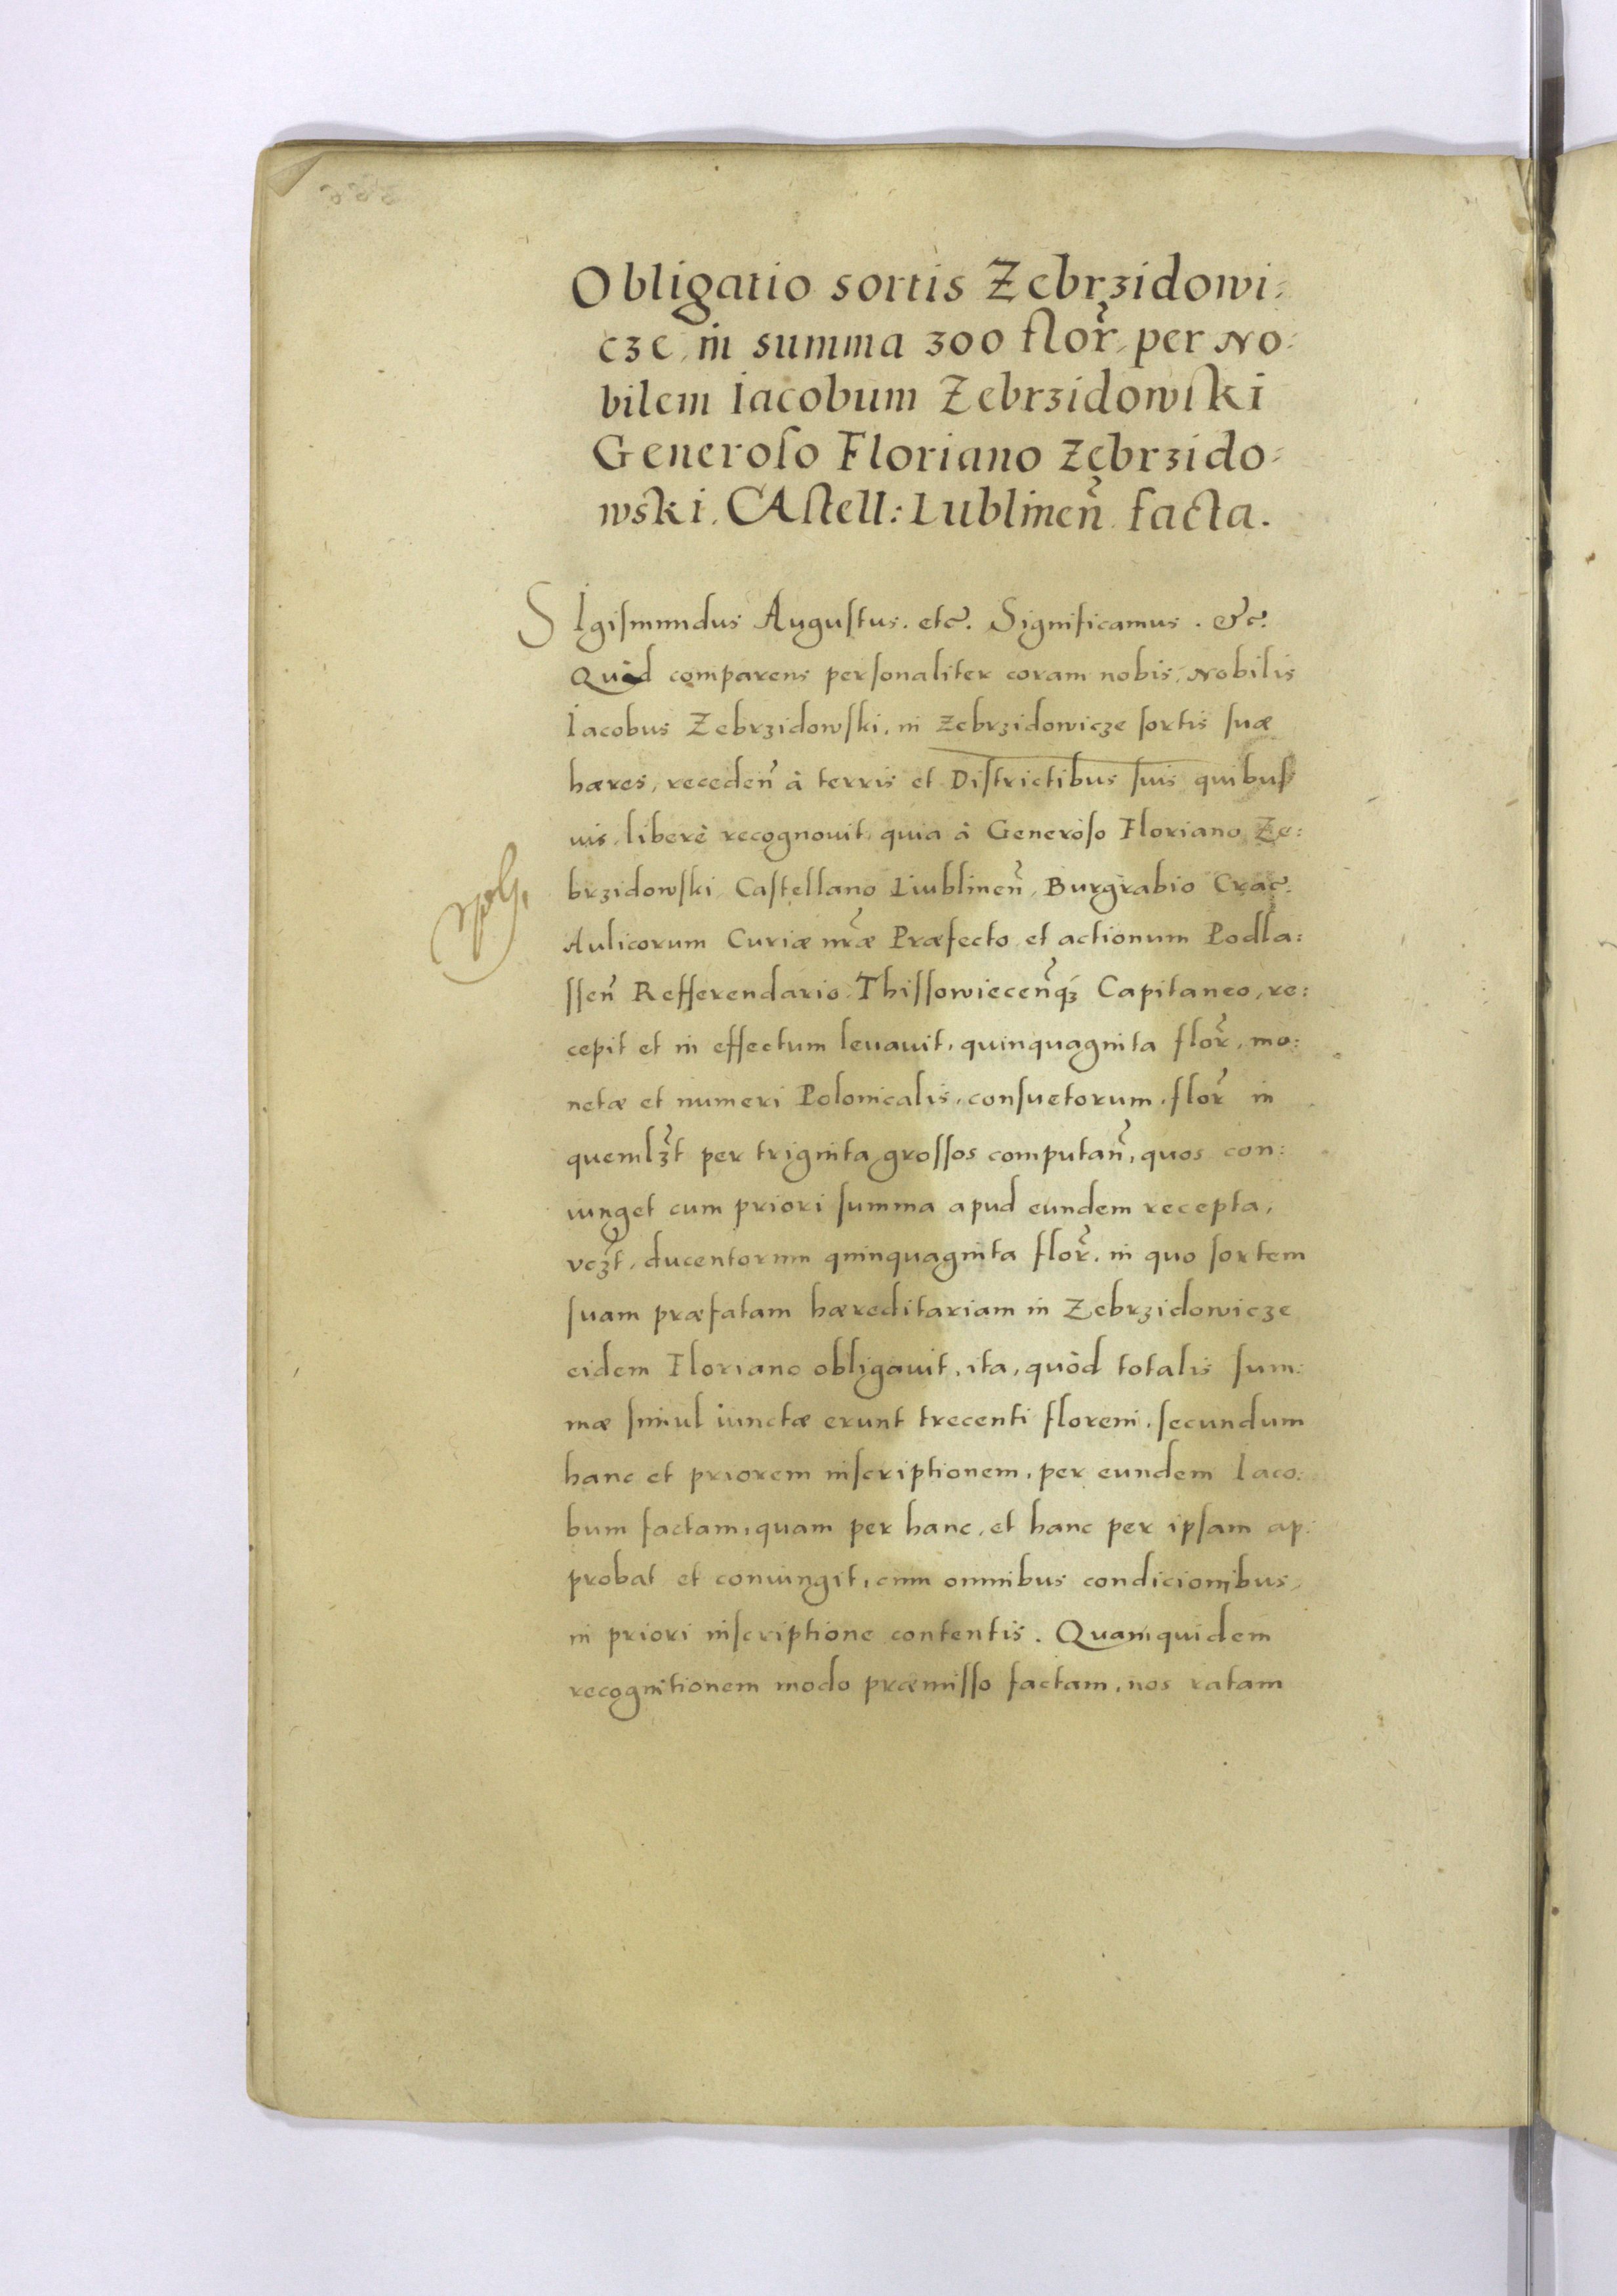 Obligatio sortis Zebrzidowi:
cze, in summa 300 flor̃, per No:
bilem Iacobum Zebrzidowski
Generoso Floriano Zebrzido:
wski, CAstell: Lublinen̄ facta.
SIgismundus Augustus. etc. Significamus. &c.
Quòd comparens personaliter coram nobis, Nobilis
Iacobus Zebrzidowski, in Zebrzidowicze sortis suæ
hæres, receden̄ à terris et Districtibus suis quibus
uis, liberè recognouit, quia à Generoso Floriano Ze:
brzidowski, Castellano Liublinen̄, Burgrabio Crac̄.
Aulicorum Curiæ nr̃æ Præfecto, et actionum Podla:
ssen̄ Refferendario, Thissowiecen̄q3 Capitaneo, re:
cepit et in effectum leuauit, quinquaginta flor̃, mo:
netæ et numeri Polonicalis, consuetorum, flor̃ in
queml3t per triginta grossos computan̄, quos con:
iunget cum priori summa apud eundem recepta,
vc3t, ducentorum quinquaginta flor̃. in quo sortem
suam præfatam hæreditariam in Zebrzidowicze
eidem Floriano obligauit, ita, quòd totalis sum:
mæ simul iunctæ erunt trecenti floreni, secundum
hanc et priorem inscriptionem, per eundem Iaco:
bum factam, quam per hanc, et hanc per ipsam ap:
probat et coniungit, cum omnibus condicionibus,
in priori inscriptione contentis. Quamquidem
recognitionem modo præmisso factam, nos ratam